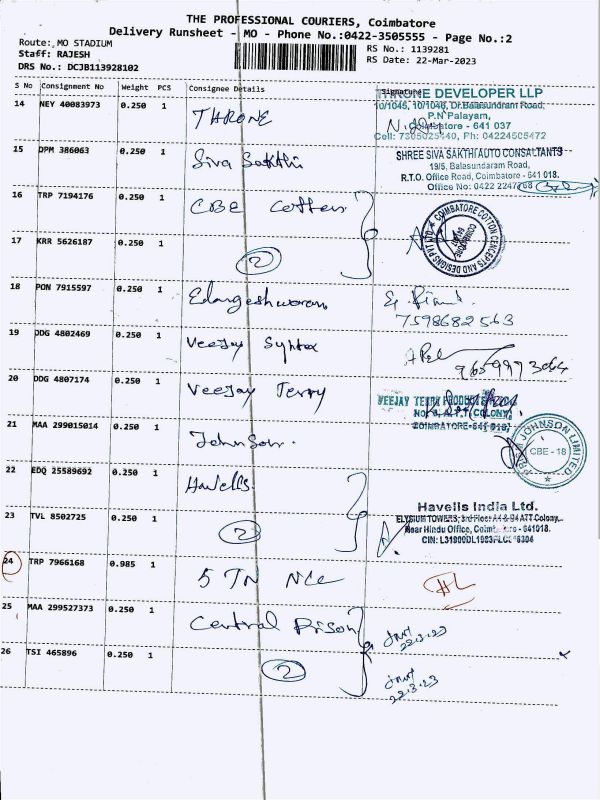 THE PROFESSIONAL COURIERS, Coimbatore
Delivery Runsheet - MO - Phone No.:0422-3505555 - Page No.:2
Route: MO STADIUM
Staff: RAJESH
DRS No.: DCJB113928102
RS No.: 1139281
RS Date: 22-Mar-2023
S No Consignment No Weight PCS Consignee Details Signature
14 NEY 40083973 0.250 1 THRONE
THRONE DEVELOPER LLP
10/1045, 10/1046, Dr.Balasundram Road,
P.N Palayam,
Coimbatore - 641 037
Cell: 7305025440, Ph: 04224505472
15 DPM 386063 0.250 1 Siva Sakthi
SHREE SIVA SAKTHI AUTO CONSALTANTS
19/5, Balasundaram Road,
R.T.O. Office Road, Coimbatore - 641 018.
Office No: 0422 2247768
16 TRP 7194176 0.250 1 CBE Cotton
COIMBATORE COTTON CENCEPTS AND DESIGNS PVT LTD
17 KRR 5626187 0.250 1
2
18 PON 7915597 0.250 1 Edangeshwaran
7598682563
19 DDG 4802469 0.250 1 Veejay Syntex
9659993064
20 DDG 4807174 0.250 1 Veejay Terry
VEEJAY TERRY PRODUCTS
COIMBATORE-641 018.
21 MAA 299015014 0.250 1 Johnson.
JOHNSON LIMITED
CBE - 18
22 EDQ 25589692 0.250 1 Havells
23 TVL 8502725 0.250 1
2
Havells India Ltd.
ELYSIUM TOWERS, 3rd Floor ATT Colony,
Near Hindu Office, Coimbatore - 641018.
24 TRP 7966168 0.985 1 5 TN NCC
25 MAA 299527373 0.250 1 Central Prison
22.3.23
26 TSI 465896 0.250 1
2
22.3.23